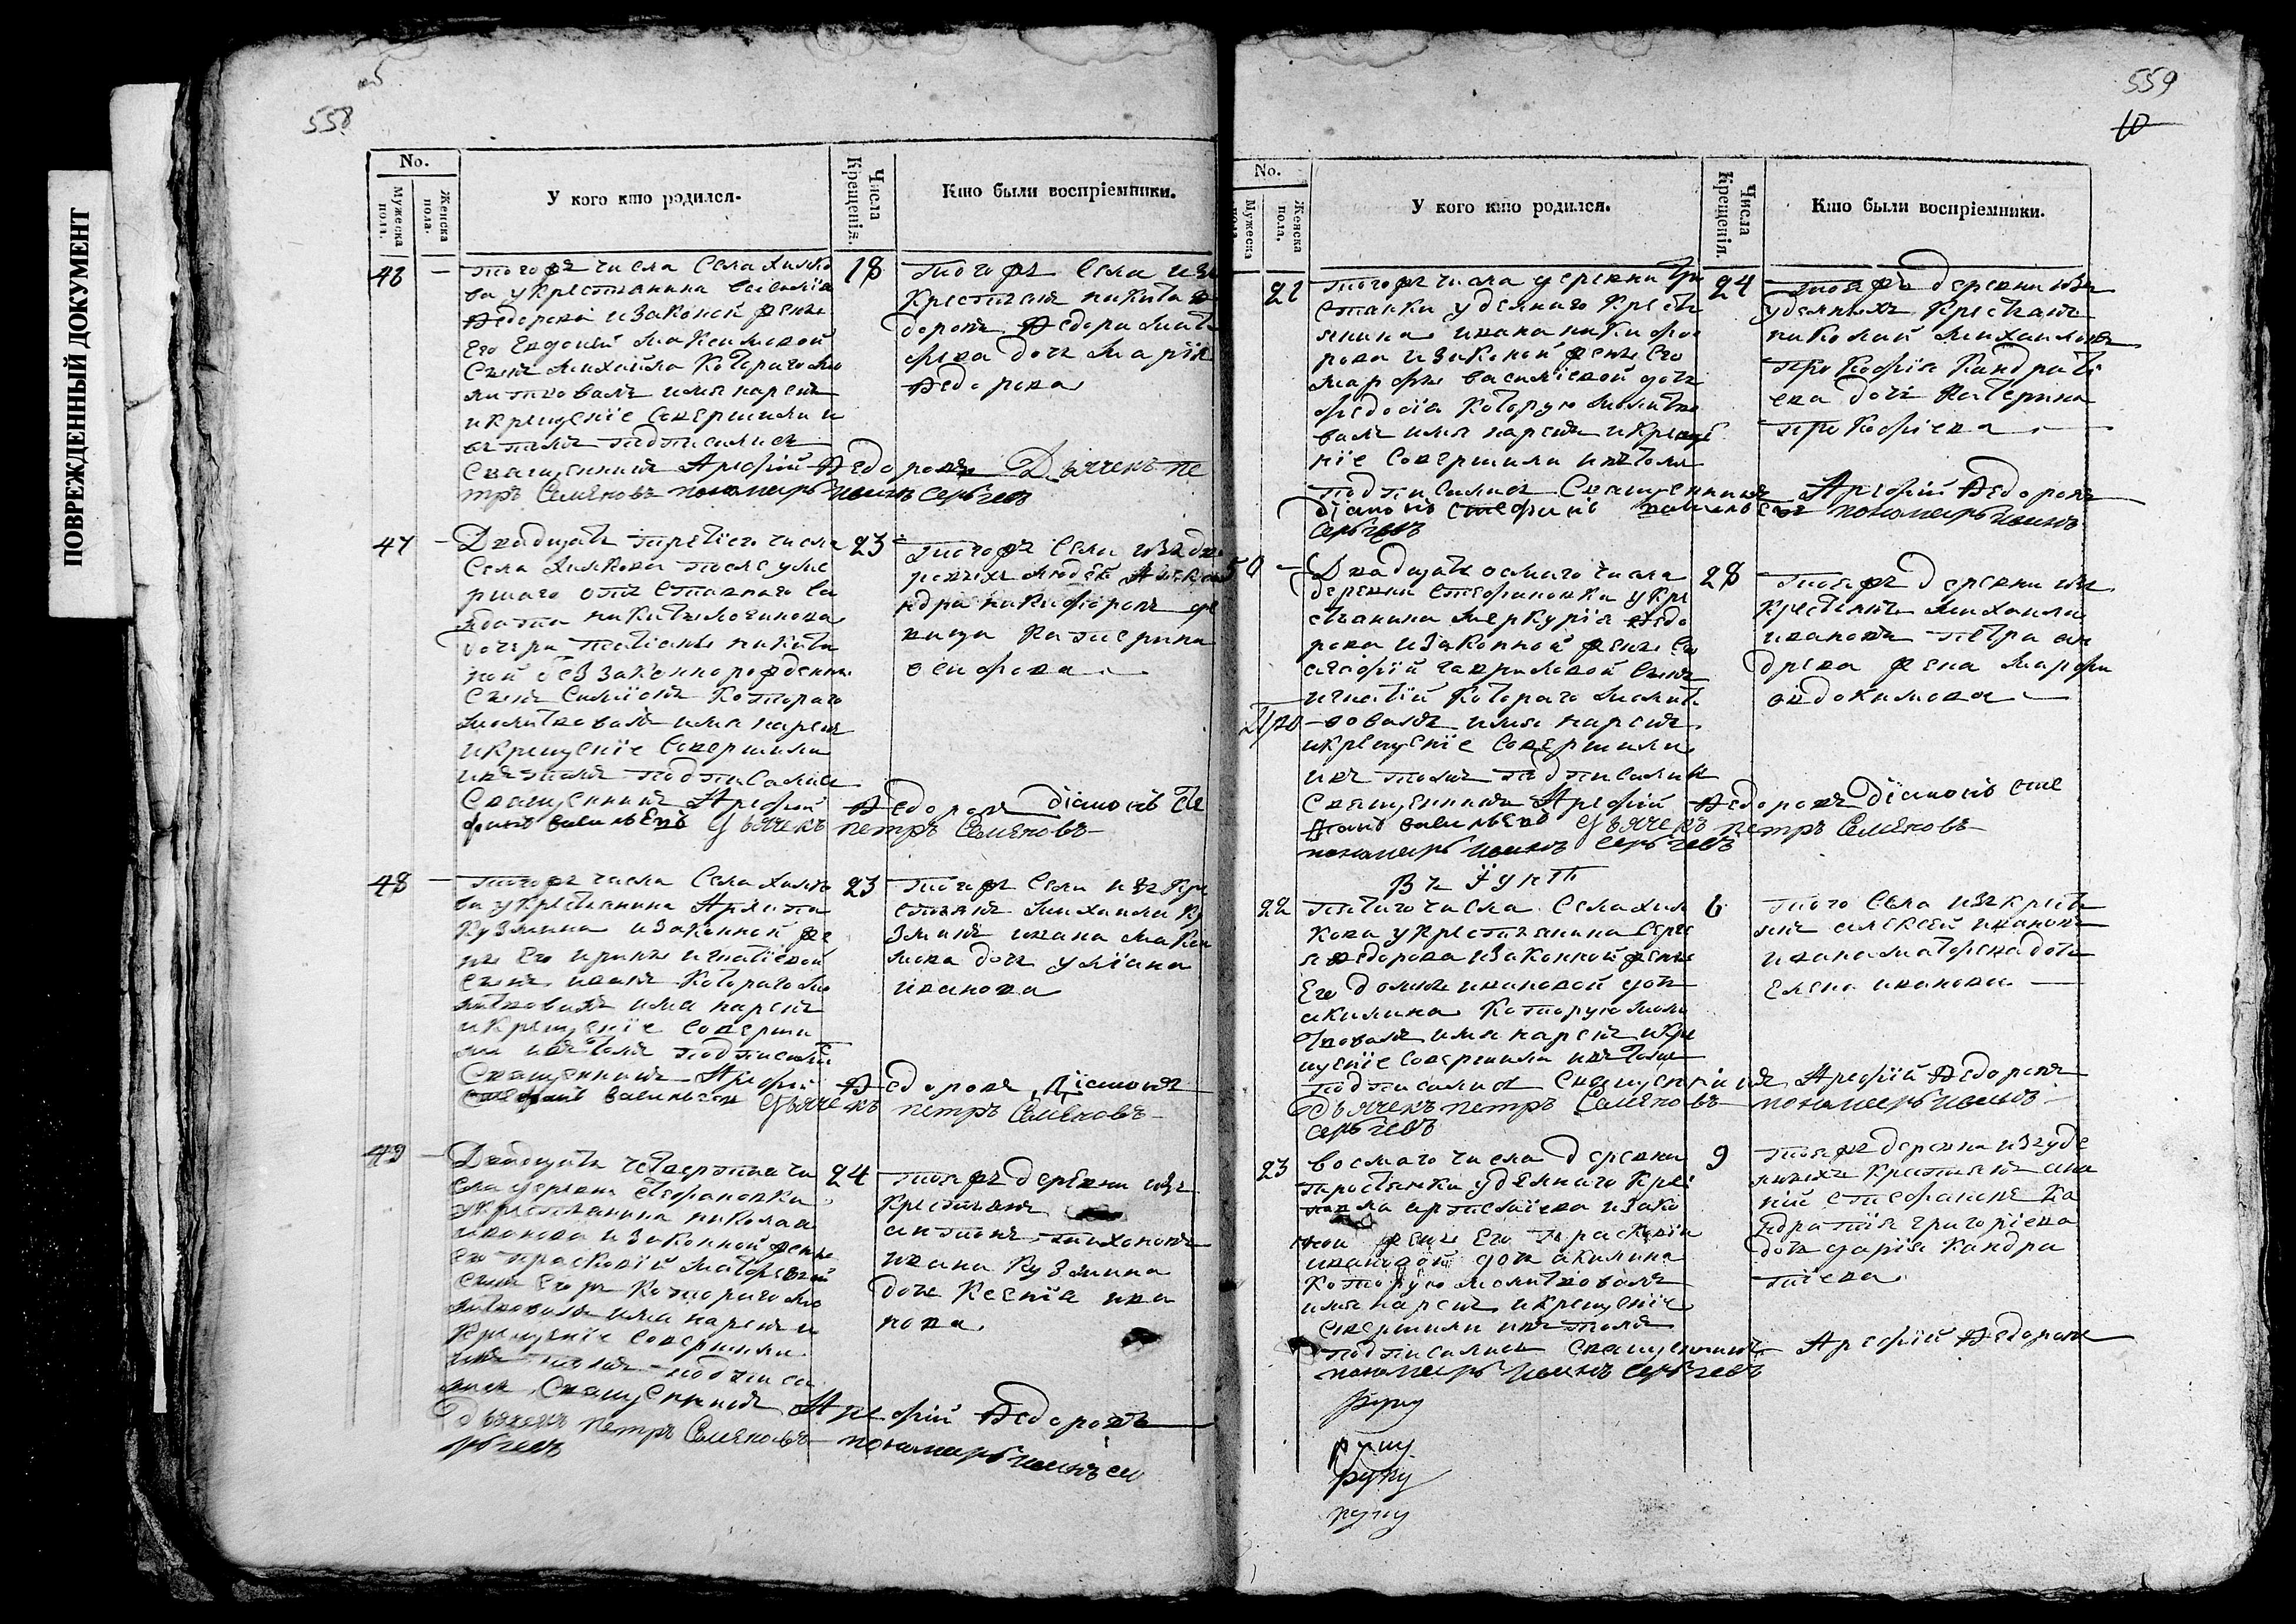 ПОВРЕЖДЕННЫЙ ДОКУМЕНТ
558
No.
Мужеска пола.
Женска пола.
У кого кто родился.
Числа Крещенія.
Кто были воспріемники.
46
тогожъ числа Села Хилко
ва укрестьянина
Федорова изаконой жены
Его Евдокеи Максимовой
Сынъ Михайла Котораго мо
литвовалъ имя нарекъ
икрещеніе Совершили и
въ томъ подписались
Священникъ Арефий Федоровъ Дьячекъ Пе
тръ Семеновъ пономарь Иванъ Сергѣевъ
18
тогожъ Села изъ
Крестьянъ никита Фе
доровъ Федора Мат
фѣева дочь Марія
Федорова
47
Двадцать третіего числа
Села Хилкова после уме
ршаго отставнаго Са
лдата никиты логинова
дочери татіаны никити
ной беззаконнорожденны
Сынъ Симіонъ Котораго
Молитвовалъ имя нарекъ
икрещеніе Совершили
ивъ томъ подписались
Священникъ Арефий Федоровъ діаконъ Сте
фанъ васильевъ дьячекъ петръ Семеновъ
23
тогожъ Села изъ дво
ровыхъ людей Алекса
ндра никифоровъ де
вица Катерина
осифова
48
тогожъ числа Села Хилко
ва укрестьянина Архипа
Кузмина изаконной же
ны Его ирины игнатіевой
Сынъ иванъ Котораго мо
литвовалъ имя нарекъ
икрещеніе Соверши
ли ивъ томъ подписались
Священникъ Арефий Федоровъ Діаконъ
Стефанъ васильевъ дьячекъ петръ Семеновъ
23
тогожъ Села изъ Кре
стьянъ Михаила Ку
зминъ ивана Макси
мова дочь уліана
иванова
49
Двадцать Четвертаго чи
сла деревни Стефановки
укрестьянина николая
иванова изаконной жены
Его прасковій Матфѣевой
Сынъ Егоръ Котораго мо
литвовалъ имя нарекъ и
Крещеніе Совершили
ивъ томъ подписа
лись Священникъ Арефий Федоровъ
Дьячекъ Петръ Семеновъ пономарь Иванъ Се
ргѣевъ
24
тояжъ деревни изъ
Крестьянъ
антонъ тихоновъ
ивана Кузмина
дочь Ксенія ива
нова
559
10
No.
Мужеска пола.
Женска пола.
У кого кто родился.
Числа Крещенія.
Кто были воспріемники.
21
тогожъ числа деревни Тро
стянки удѣлнаго Кресть
янина ивана никифо
рова изаконой жены Его
марфы василіевой дочь
федосіа Которую молитво
валъ имя нарекъ икреще
ніе Совершили ивътомъ
подписались Священникъ Арефий Федоровъ
діаконъ стефанъ васильевъ пономарь Иванъ
Сергѣевъ
24
тояжъ деревни изъ
Удѣлныхъ Крестьянъ
николай Михаиловъ
прокофія Кандрати
ева дочь Катерина
прокофіева
50
Двадцать осмаго числа
деревни Стефановки укре
стьянина Меркурія федо
рова изаконной жены
гавриловой Сынъ
игнатій Котораго молит
вовалъ имя нарекъ
икрещеніе Совершили
ивъ томъ подписались
Священникъ Арефий Федоровъ діаконъ сте
фанъ васильевъ дьячекъ петръ Семеновъ
пономарь Иванъ Сергѣевъ
28
тояжъ деревни изъ
Крестьянъ Михаила
ивановъ петра ан
дреева жена Марфа
евдокимова
Въ Іунѣ
22
пятаго числа Села Хил
кова укрестьянина Серге
я федорова изаконной жены
Его домны ивановой дочь
акилина Которую моли
твовалъ имя нарекъ икре
щеніе Совершили ивъ томъ
подписались Священникъ Арефий Федоровъ
дьячекъ петръ Семеновъ пономарь Иванъ
Сергѣевъ
6
того Села изъ крестья
нъ алексей ивановъ
ивана Матфеева дочь
Елена иванова
23
восмаго числа деревни
тростянки удѣлнаго Крес
артемиева изако
ной жены Его парасковіи
ивановой дочь акилина
Которую молитвовалъ
имя нарекъ икрещеніе
Совершили ивъ томъ
подписались Священникъ Арефий Федоровъ
пономарь Иванъ Сергѣевъ
9
тояжъ деревни изъ уде
лныхъ Крестьянъ ана
ній Стефановъ Ка
ндратія григоріева
дочь дарія Кандра
тіева
руку
руку
руку
руку